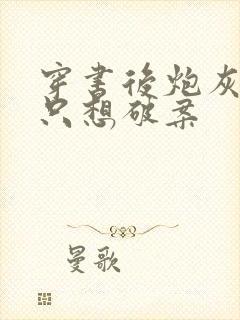 穿书后炮灰
只想破案
曼歌